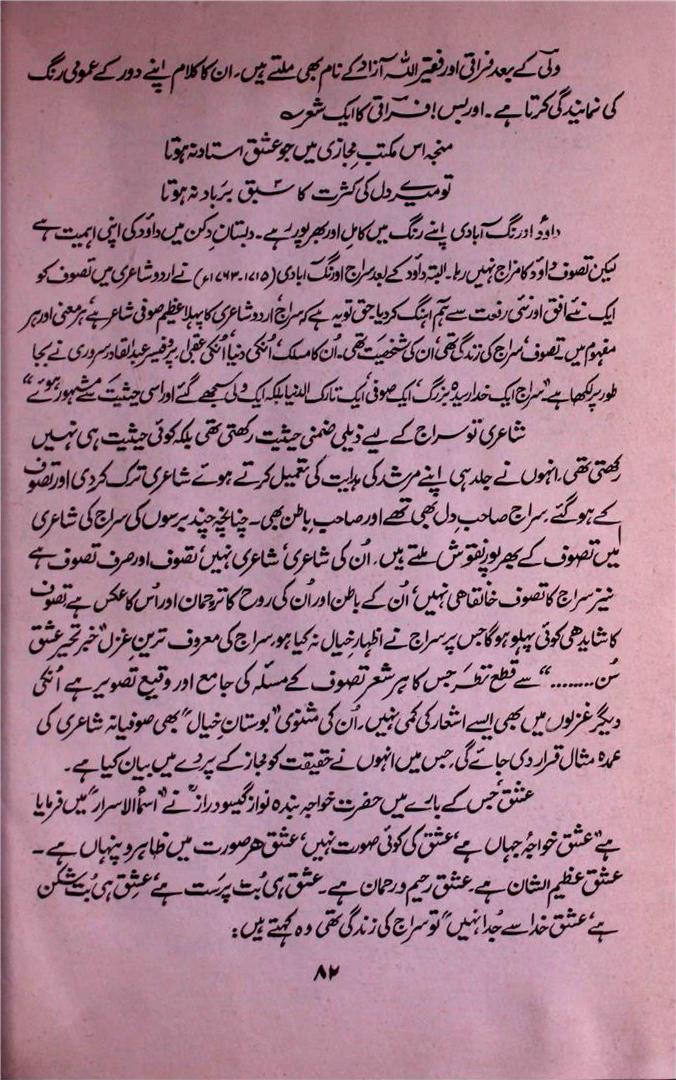 ولی کے بعد فراقی اور فقیر اللہ آزاد کے نام بھی ملتے ہیں۔ ان کا کلام اپنے دور کے عمومی رنگ
کی نمایندگی کرتا ہے۔ اور بس! فراقی کا ایک شعر ؎
منجہ اس مکتب مجازی میں جو عشق استاد نہ ہوتا
تو میرے دل کی کثرت کا سبق برباد نہ ہوتا
داؤد اورنگ آبادی اپنے رنگ میں کامل اور بھرپور ہے۔ دبستانِ دکن میں داؤد کی اپنی اہمیت ہے
لیکن تصوف داؤد کا مزاج نہیں رہا۔ البتہ داؤد کے بعد سراج اورنگ آبادی (۱۷۱۵-۱۷۶۳ء) نے اردو شاعری میں تصوف کو
ایک نئے افق اور نئی رفعت سے ہم آہنگ کر دیا حق تو یہ ہے کہ سراج، اردو شاعری کا پہلا عظیم صوفی شاعر ہے، ہر معنی اور ہر
مفہوم میں تصوف، سراج کی زندگی تھی، ان کی شخصیت تھی۔ اُن کا مسلک، اُنکی دنیا، اُنکی عقبیٰ، پروفیسر عبدالقادر سروری نے بجا
طور پر لکھا ہے "سراج ایک خدا رسیدہ بزرگ، ایک صوفی، ایک تارک الدنیا بلکہ ایک ولی سمجھے گئے اور اسی حیثیت سے مشہور ہوئے"
شاعری تو سراج کے لیے ذیلی ضمنی حیثیت رکھتی تھی بلکہ کوئی حیثیت ہی نہیں
رکھتی تھی، انہوں نے جلد ہی اپنے مرشد کی ہدایت کی تعمیل کرتے ہوئے شاعری ترک کر دی اور تصوف
کے ہو گئے۔ سراج صاحبِ دل بھی تھے اور صاحبِ باطن بھی۔ چنانچہ چند برسوں کی سراج کی شاعری
میں تصوف کے بھرپور نقوش ملتے ہیں۔ اُن کی شاعری، شاعری نہیں، تصوف اور صرف تصوف ہے
نیز سراج کا تصوف خانقاہی نہیں، اُن کے باطن اور اُن کی روح کا ترجمان اور اُس کا عکس ہے، تصوف
کا شاید ہی کوئی پہلو ہو گا جس پر سراج نے اظہار خیال نہ کیا ہو سراج کی معروف ترین غزل "خبرِ تحیرِ عشق
سُن........" سے قطع نظر جس کا ہر شعر تصوف کے مسئلہ کی جامع اور وقیع تصویر ہے اُنکی
دیگر غزلوں میں بھی ایسے اشعار کی کمی نہیں۔ اُن کی مثنوی "بوستانِ خیال" بھی صوفیانہ شاعری کی
عمدہ مثال قرار دی جائے گی، جس میں انہوں نے حقیقت کو مجاز کے پردے میں بیان کیا ہے۔
عشق، جس کے بارے میں حضرت خواجہ بندہ نواز گیسو درازؒ نے "اسماُ الاسرار" میں فرمایا
ہے "عشق خواجۂ جہاں ہے، عشق کی کوئی صورت نہیں، عشق ہر صورت میں ظاہر و پنہاں ہے۔
عشق عظیم الشان ہے۔ عشق رحیم و رحمان ہے۔ عشق ہی بُت پرست ہے، عشق ہی بُت شکن
ہے، عشق خدا سے جُدا نہیں" تو سراج کی زندگی تھی وہ کہتے ہیں:
۸۲